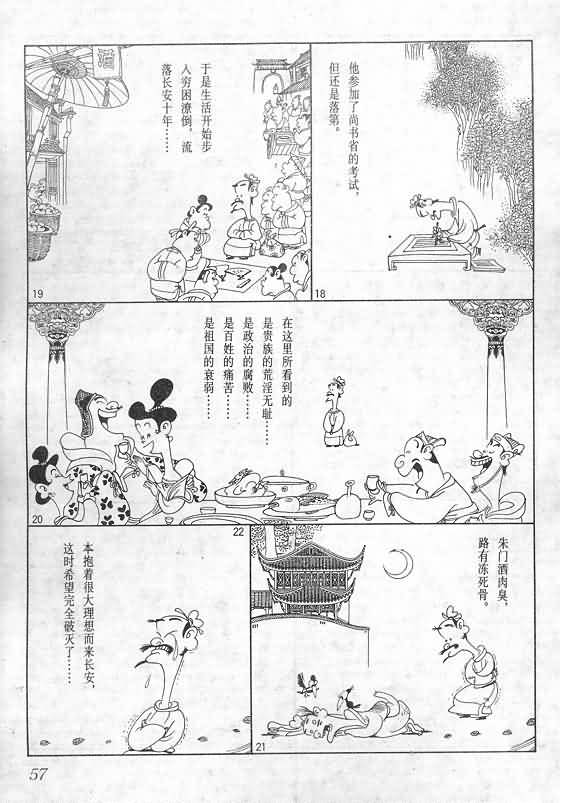 他参加了尚书省的考试，
但还是落第。
18
酒
于是生活开始步
入穷困潦倒，流
落长安十年……
19
在这里所看到的
是贵族的荒淫无耻……
是政治的腐败……
是百姓的痛苦……
是祖国的衰弱……
20
朱门酒肉臭，
路有冻死骨。
21
本抱着很大理想而来长安，
这时希望完全破灭了……
22
57